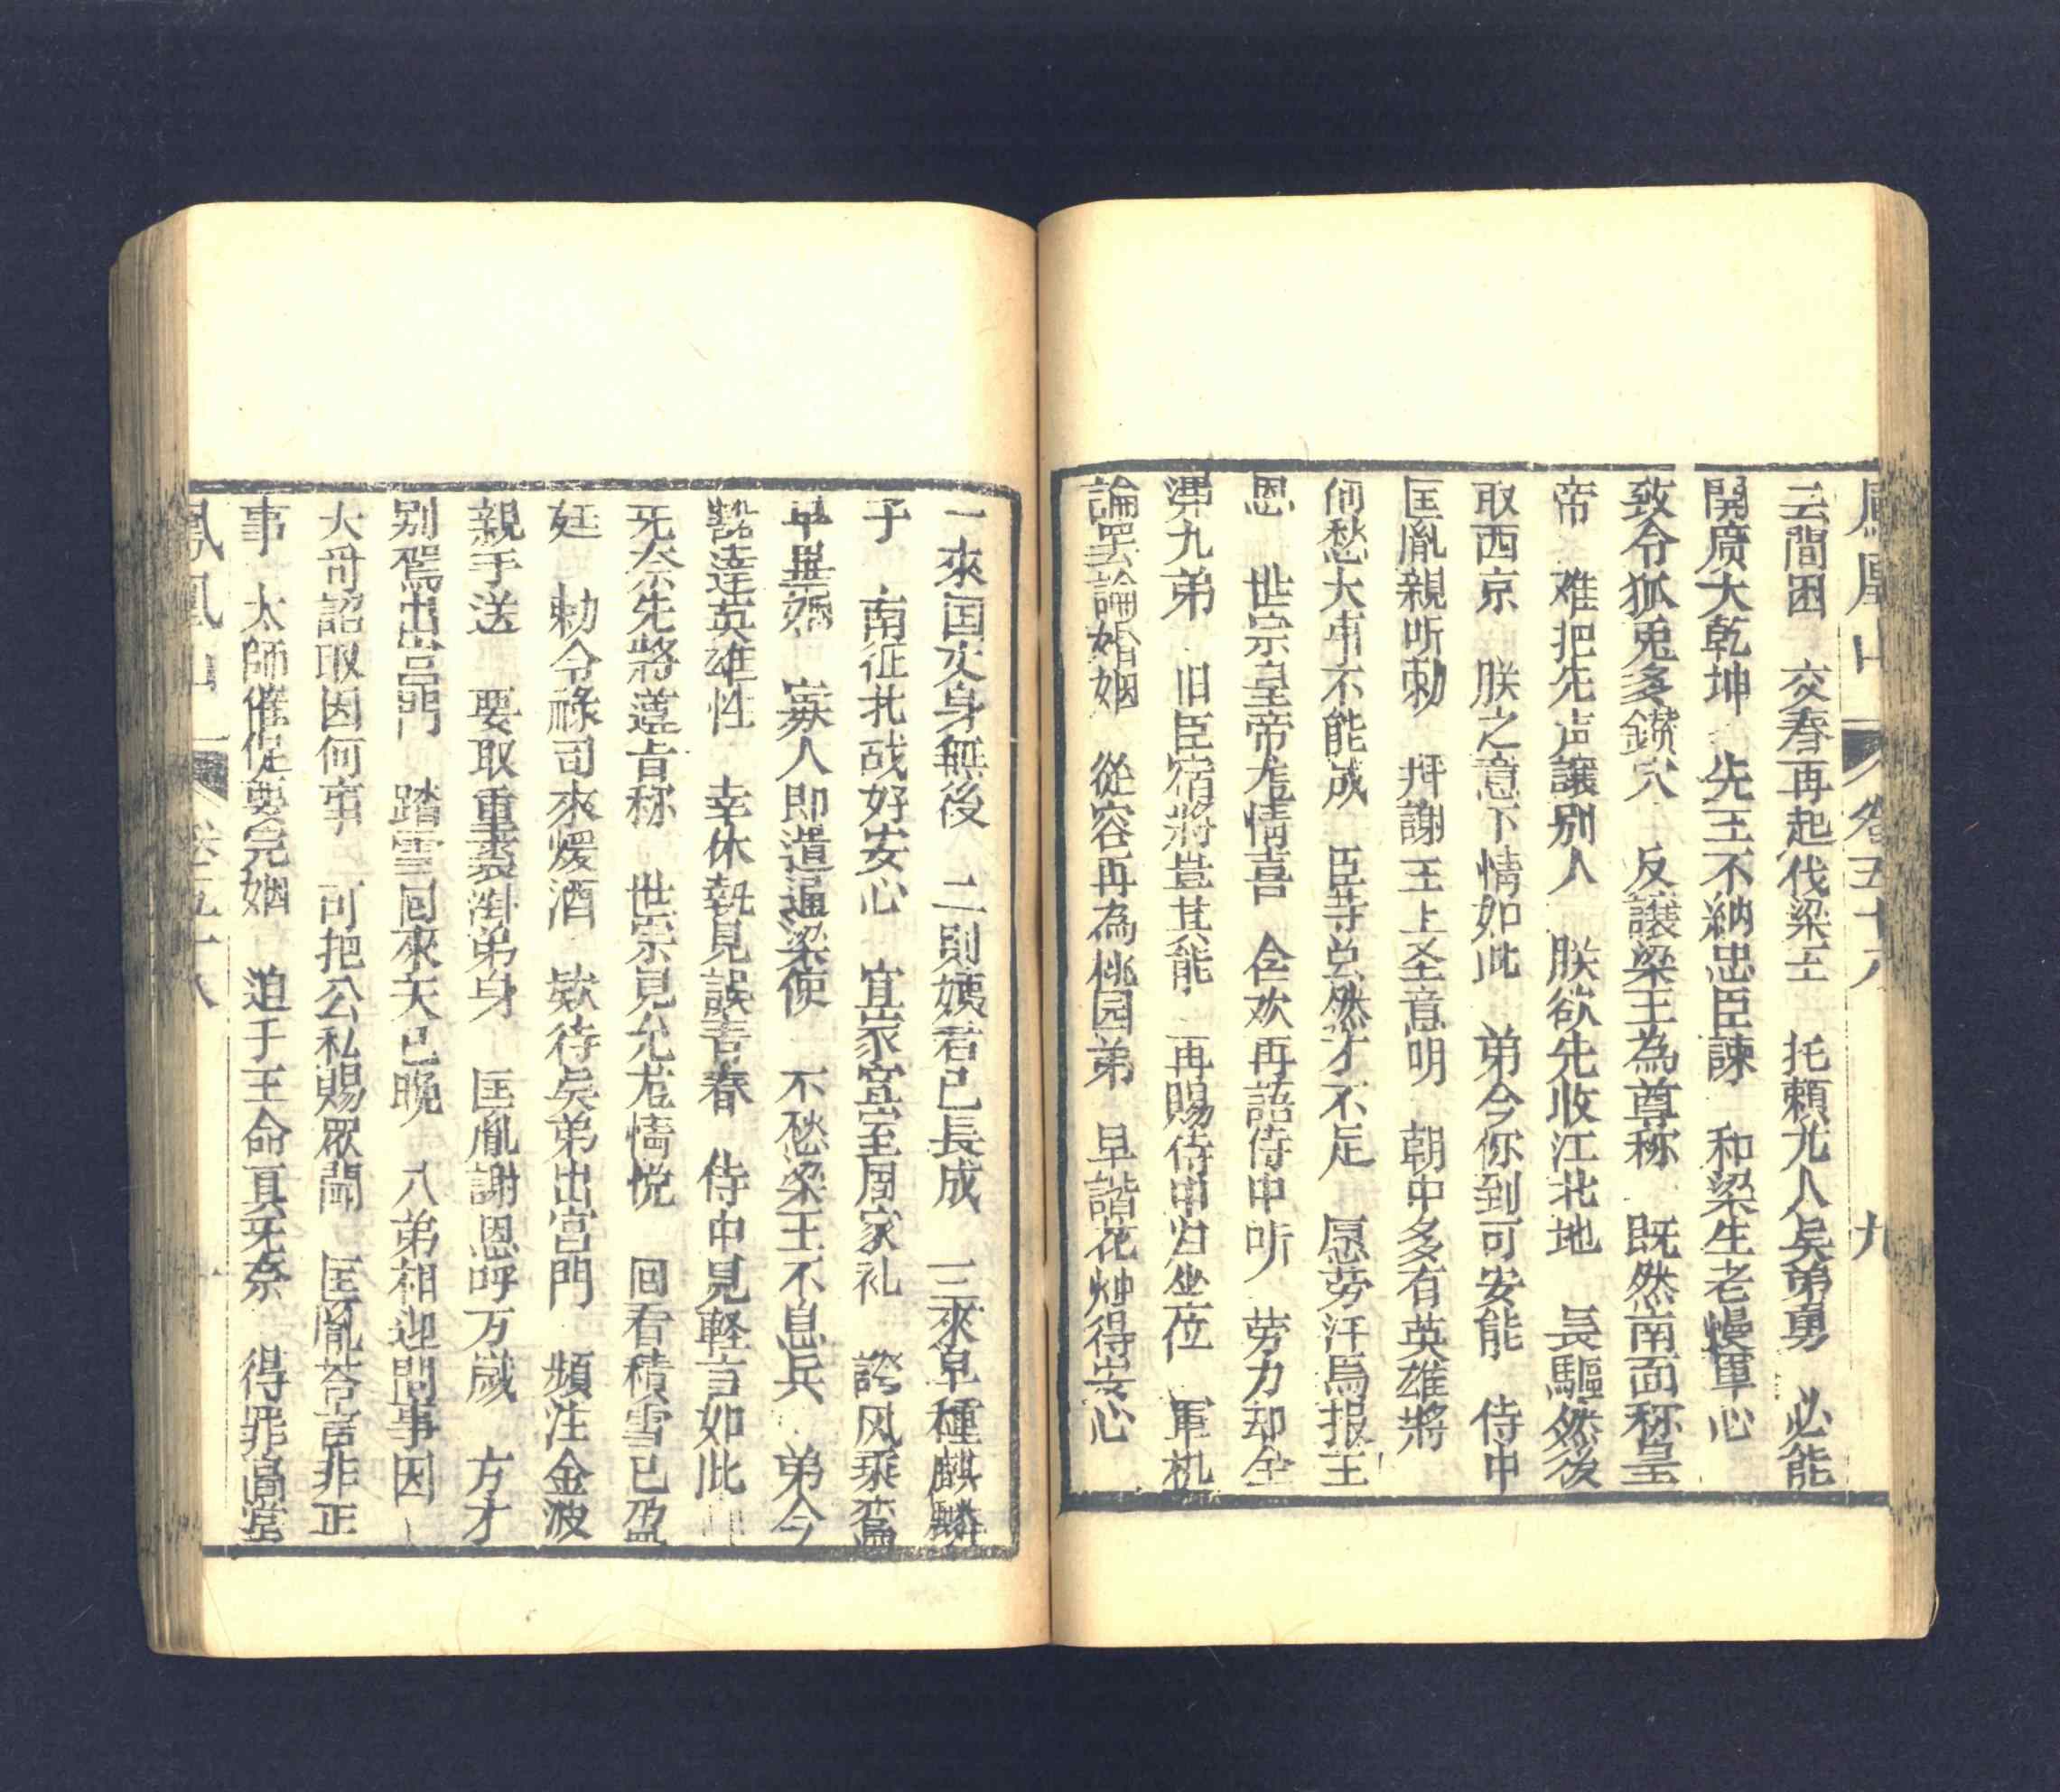 鳳凰山 卷五十八 九
云間困 交春再起伐梁王 托賴尤人吳弟勇 必能
開廣大乾坤 先王不納忠臣諫 和梁生老慢軍心
致令狐兎多鑚穴 反讓梁王為尊称 既然南面称皇
帝 难把先声讓别人 朕欲先收江北地 長驅然後
取西京 朕之意下情如此 弟今你到可安能 侍中
匡胤親听勅 拜謝王上圣意明 朝中多有英雄將
何愁大事不能成 臣等兹然才不足 愿劳汗馬报王
恩 世宗皇帝龙情喜 合欢再語侍中听 劳力却全
九弟 旧臣宿將豈其能 再賜侍中归坐位 軍机
論罢論婚姻 從容再為桃园弟 早諧花烛得安心
一來国丈身無後 二則姨君已長成 三來早種麒麟
子 南征北战好安心 宜家宜室周家礼 誇风乘鸞
早畢婚 寡人即遣通梁使 不愁梁王不息兵 弟今
豁達英雄性 幸休執見誤青春 侍中見軽言如此
无奈先將遵旨称 世宗見允龙情悅 回看積雪已盈
廷 勅令祿司來煖酒 欵待吳弟出宫門 頻注金波
親手送 要取重裘掛弟身 匡胤謝恩呼万歲 方才
别駕出宫門 踏雪回來天已晚 八弟相迎問事因
大哥詔取因何事 可把公私賜眾聞 匡胤答言非正
事 太師催促要完姻 迫于王命真无奈 得罪高堂
鳳凰山 卷五十八